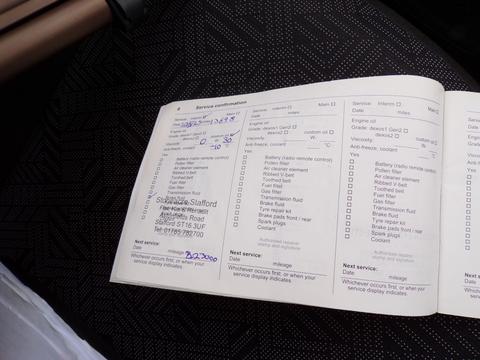 Service confirmation
Service: Interim
Main
Date
miles
Engine oil
Grade: dexos1 Gen2
dexos2
custom oil
Viscosity:
0 W 30
Anti-freeze, coolant
°C
Yes
Battery (radio remote control)
Pollen filter
Air cleaner element
Ribbed V-belt
Toothed belt
Fuel filter
Gas filter
Transmission fluid
Stafford
Stafford ST16 3UF
Next service:
Date
mileage
23000
Whichever occurs first, or when your
service display indicates.
Service: Interim
Main
Date:
miles
Engine oil
Grade: dexos1 Gen2
dexos2
custom oil
Viscosity:
W
Anti-freeze, coolant
°C
Yes
Battery (radio remote control)
Pollen filter
Air cleaner element
Ribbed V-belt
Toothed belt
Fuel filter
Gas filter
Transmission fluid
Brake fluid
Tyre repair kit
Brake pads front / rear
Spark plugs
Coolant
Authorised repairer
stamp and signature
Next service:
Date
mileage
Whichever occurs first, or when your
service display indicates.
Service: Interim
Main
Date:
miles
Engine oil
Grade: dexos1 Gen2
dexos2
custom oil
Viscosity:
W
Anti-freeze, coolant
°C
Yes
Battery (radio remote control)
Pollen filter
Air cleaner element
Ribbed V-belt
Toothed belt
Fuel filter
Gas filter
Transmission fluid
Brake fluid
Tyre repair kit
Brake pads front / rear
Spark plugs
Coolant
Authorised repairer
stamp and signature
Next service:
Date
mileage
Whichever occurs first, or when your
service display indicates.